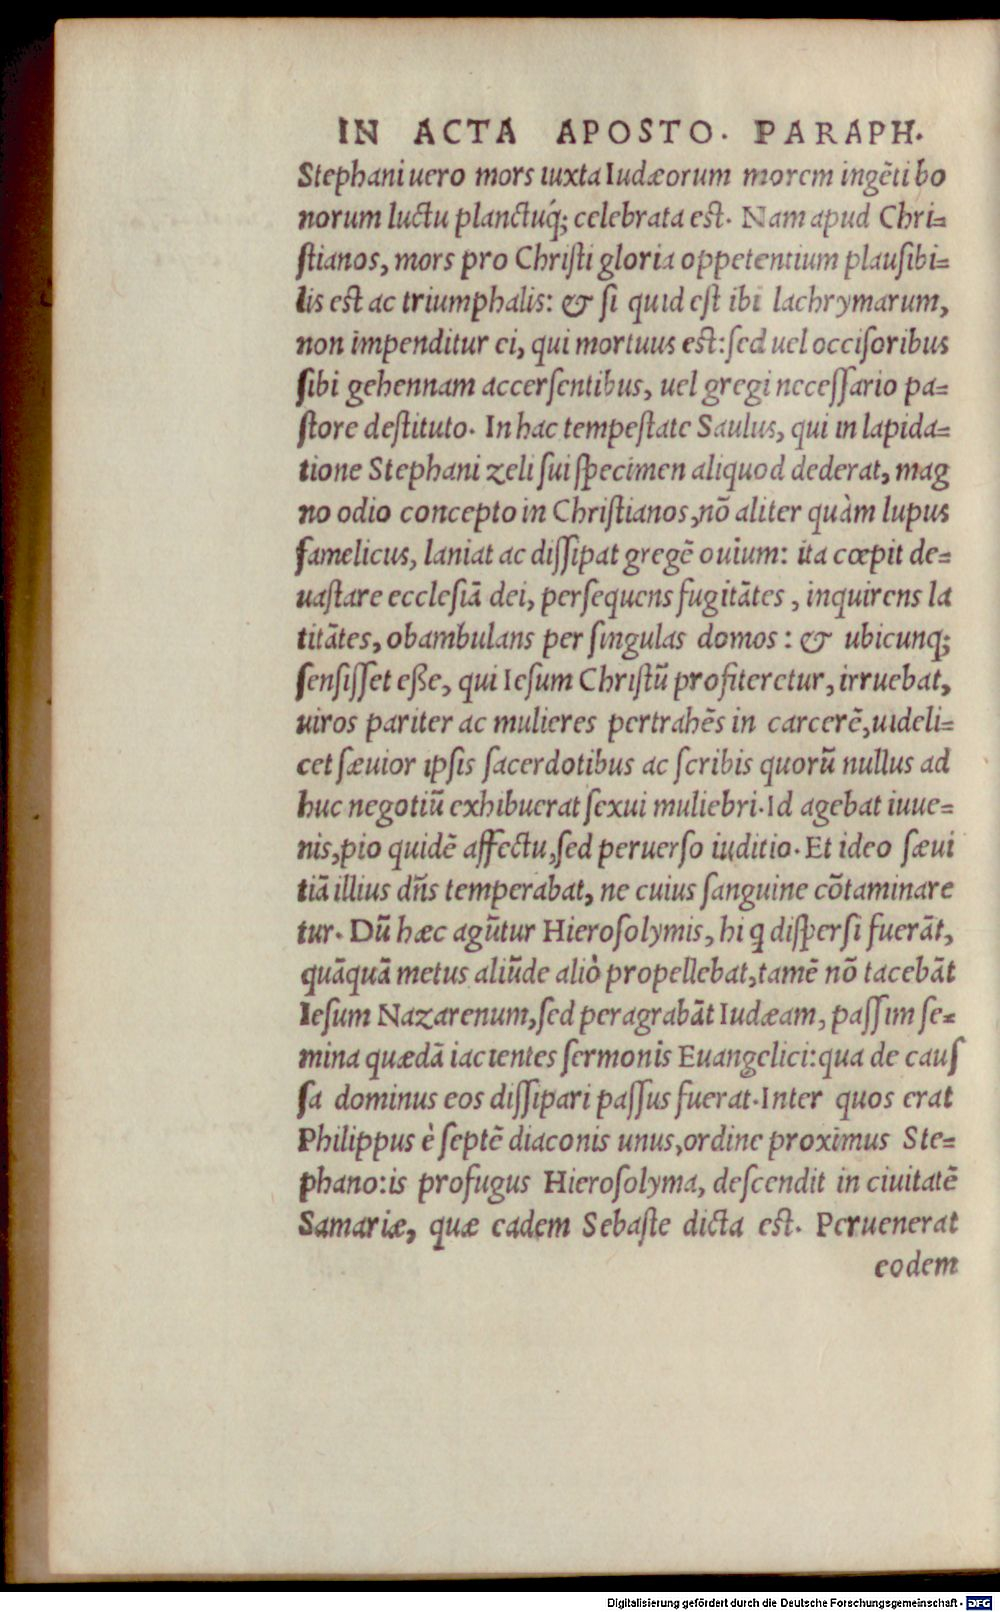 IN ACTA APOSTO. PARAPH.
Stephani uero mors iuxta Iudæorum morem ingẽti bo
norum luctu planctuq́; celebrata est. Nam apud Chri=
ſtianos, mors pro Chriſti gloria oppetentium plauſibi=
lis est ac triumphalis: & ſi quid eſt ibi lachrymarum,
non impenditur ei, qui mortuus est: ſed uel occiſoribus
ſibi gehennam accerſentibus, uel gregi neceſſario pa=
ſtore deſtituto. In hac tempeſtate Saulus, qui in lapida=
tione Stephani zeli ſui ſpecimen aliquod dederat, mag
no odio concepto in Chriſtianos, nõ aliter quàm lupus
famelicus, laniat ac diſſipat gregẽ ouium: ita cœpit de=
uaſtare eccleſiã dei, perſequens fugitãtes, inquirens la
titãtes, obambulans per ſingulas domos: & ubicunq;
ſenſiſſet eße, qui Ieſum Chriſtũ profiteretur, irruebat,
uiros pariter ac mulieres pertrahẽs in carcerẽ, uideli=
cet ſæuior ipſis ſacerdotibus ac ſcribis quorũ nullus ad
huc negotiũ exhibuerat ſexui muliebri. Id agebat iuue=
nis, pio quidẽ affectu, ſed peruerſo iuditio. Et ideo ſæui
tiã illius dñs temperabat, ne cuius ſanguine cõtaminare
tur. Dũ hæc agũtur Hieroſolymis, hi q diſperſi fuerãt,
quãquã metus aliũde aliò propellebat, tamẽ nõ tacebãt
Ieſum Nazarenum, ſed peragrabãt Iudæam, paſſim ſe=
mina quædã iacientes ſermonis Euangelici: qua de cauſ
ſa dominus eos diſſipari paſſus fuerat. Inter quos erat
Philippus è ſeptẽ diaconis unus, ordine proximus Ste=
phano: is profugus Hieroſolyma, deſcendit in ciuitatẽ
Samariæ, quæ eadem Sebaſte dicta eſt. Peruenerat
eodem
Digitalisierung gefördert durch die Deutsche Forschungsgemeinschaft - DFG